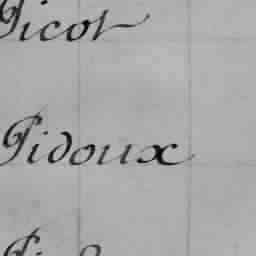 Picot
Pidoux